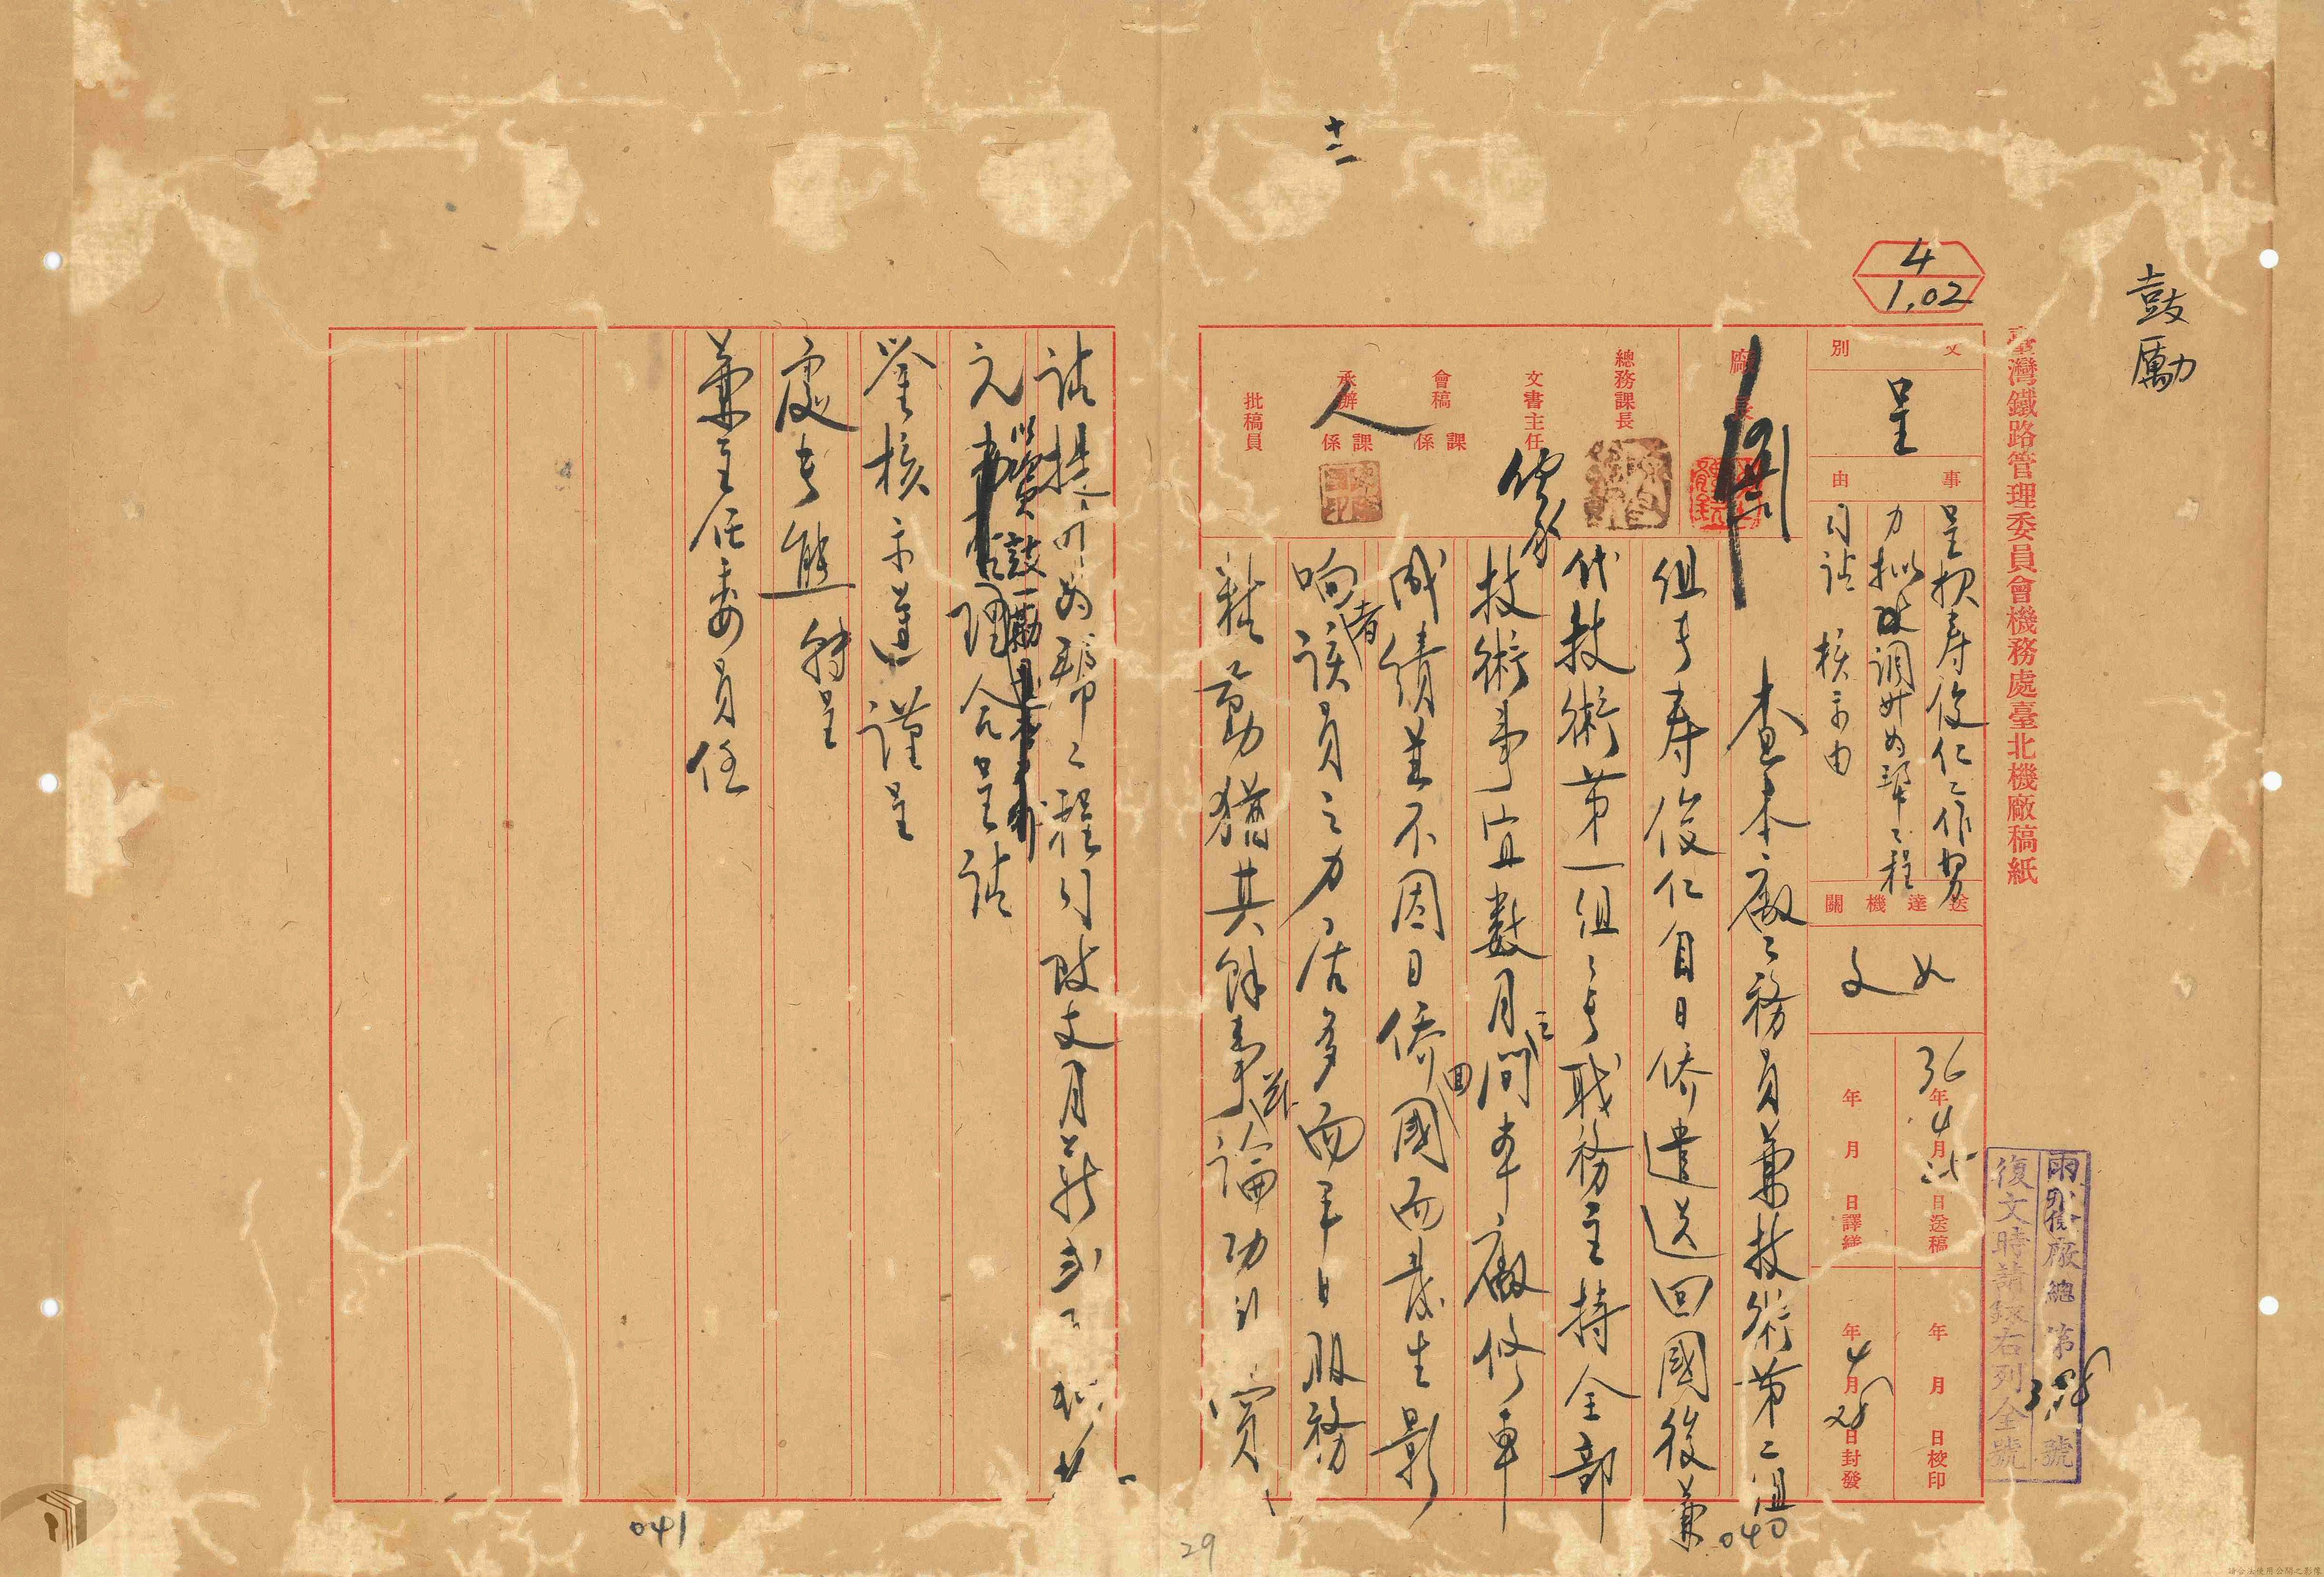 鼓勵
臺灣鐵路管理委員會機務處臺北機廠稿紙
4
1.02
十二
文別
呈
事由
呈報壽俊仁工作努
力擬改調升為幫工程
司請 核示由
送達機關
如文
36年4月25日送稿
年月日校印
年月日譯繕
年4月28日封發
廠總第號
復文時請錄右列全號
廠長
總務課長
文書主任
會稿 課係
承辦 課係
批稿員
查本廠工務員兼技術第二組
組長壽俊仁自日僑遣送回國後兼
代技術第一組組長職務主持全部
技術事宜數月之間本廠修車
成績並不因日僑回國而發生影
响者該員之力居多而平日服務
勤猶其餘事茲論功行賞
請提升為幫工程司改支月薪
元以資鼓勵理合呈請
鑒核示遵謹呈
處長熊 轉呈
兼主任委員任
040
041
29